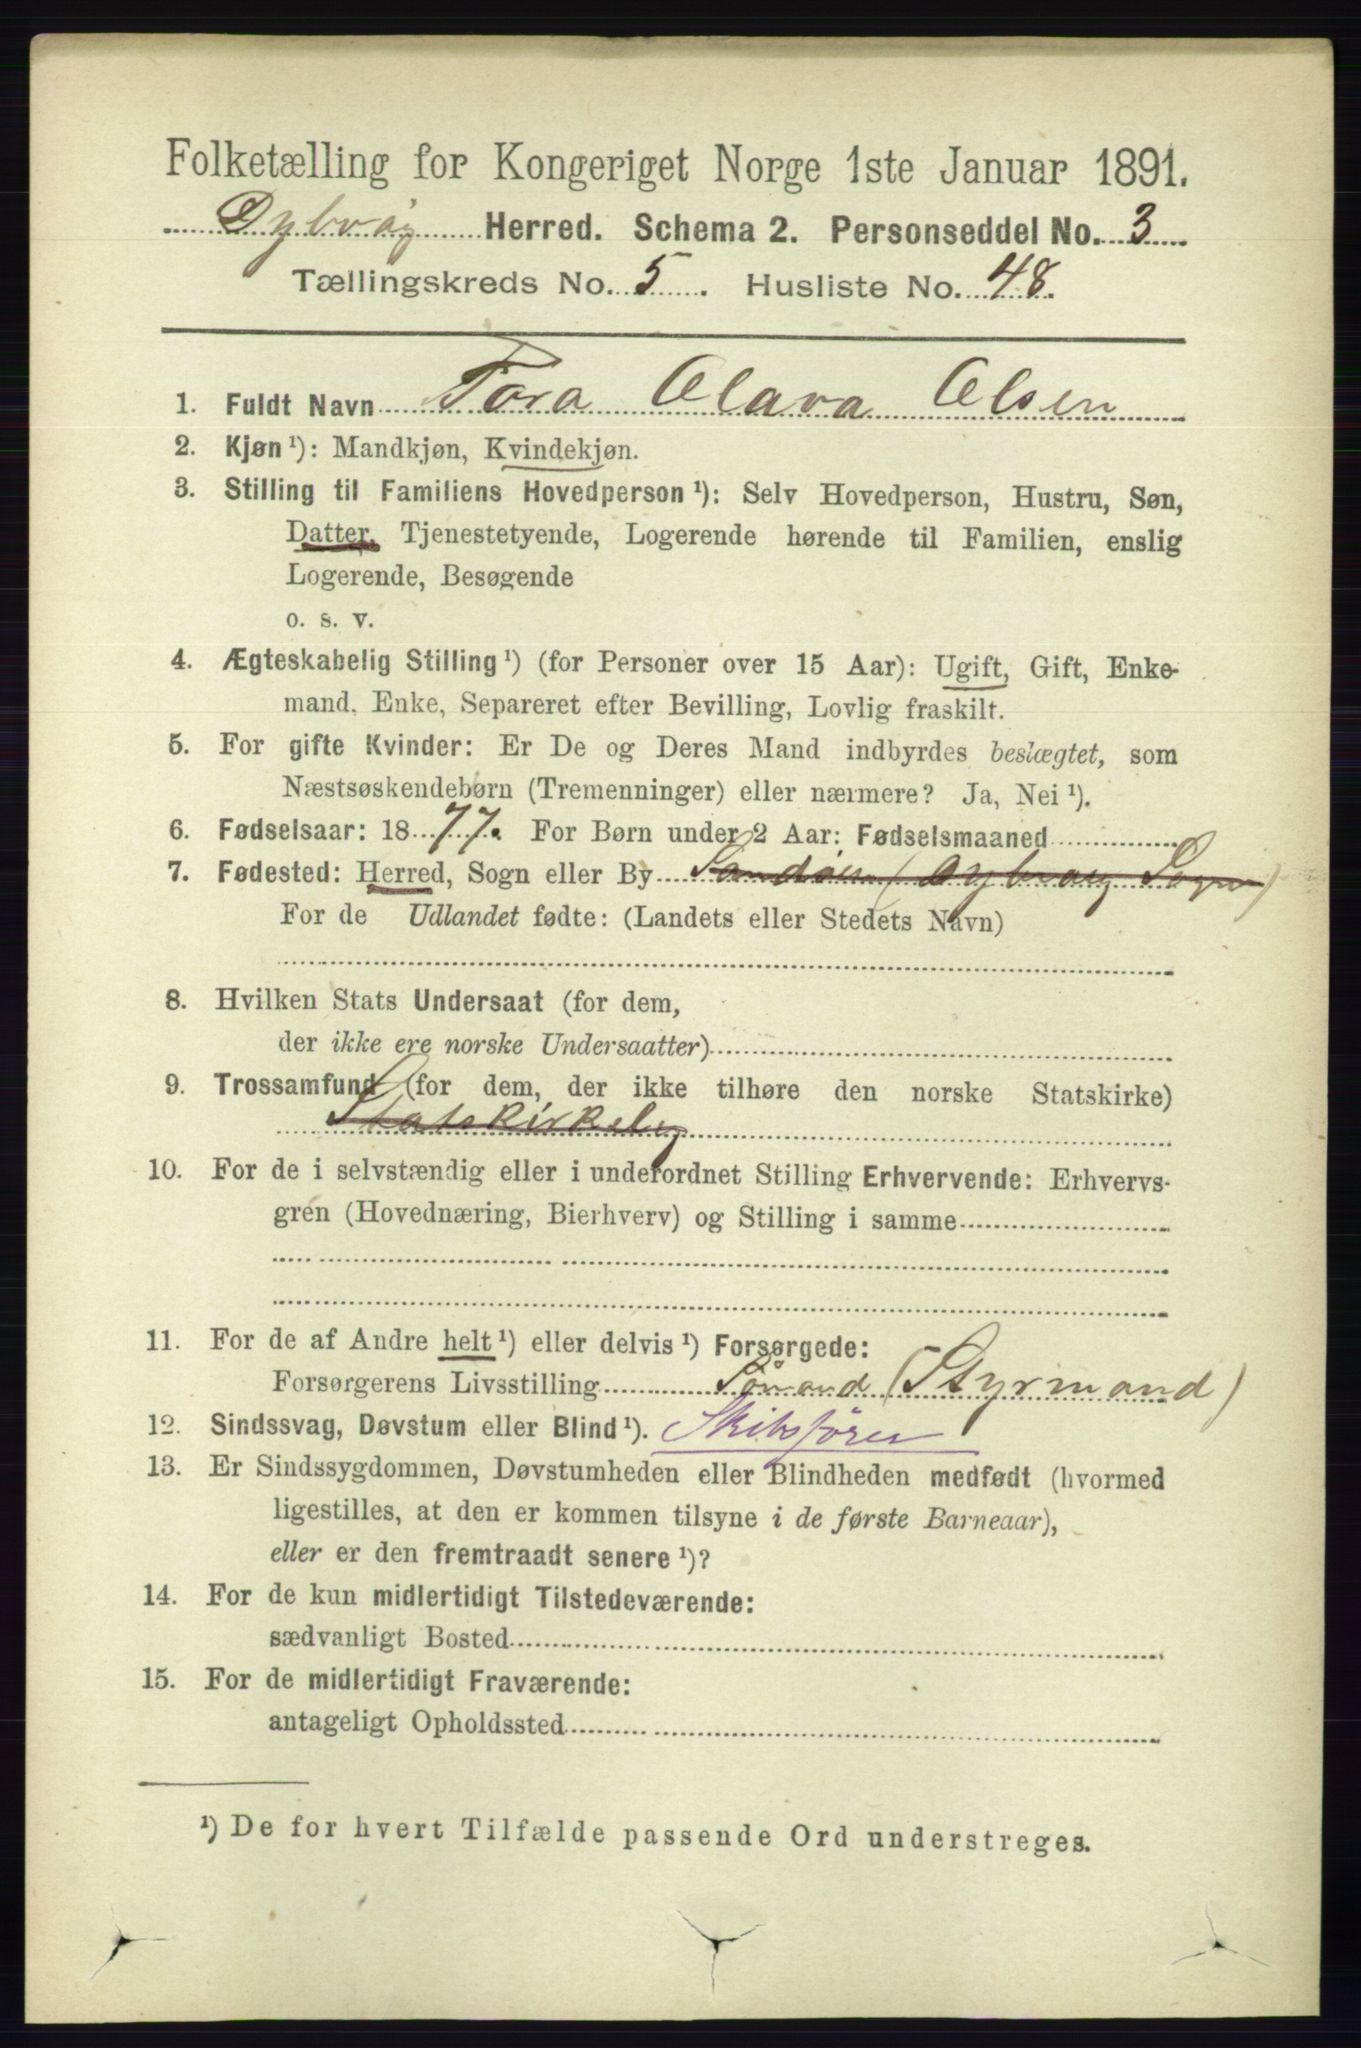 Folketælling for Kongeriget Norge 1ste Januar 1891.
Dybvåg Herred. Schema 2. Personseddel No. 3
Tællingskreds No. 5. Husliste No. 48.
1. Fuldt Navn Tora Olava Olsen
2. Kjøn ¹): Mandkjøn, Kvindekjøn.
3. Stilling til Familiens Hovedperson ¹): Selv Hovedperson, Hustru, Søn,
Datter, Tjenestetyende, Logerende hørende til Familien, enslig
Logerende, Besøgende
o. s. v.
4. Ægteskabelig Stilling ¹) (for Personer over 15 Aar): Ugift, Gift, Enke-
mand, Enke, Separeret efter Bevilling, Lovlig fraskilt.
5. For gifte Kvinder: Er De og Deres Mand indbyrdes beslægtet, som
Næstsøskendebørn (Tremenninger) eller nærmere? Ja, Nei ¹).
6. Fødselsaar: 1877. For Børn under 2 Aar: Fødselsmaaned
7. Fødested: Herred, Sogn eller By Sandøen (Dybvaag Sogn)
For de Udlandet fødte: (Landets eller Stedets Navn)
8. Hvilken Stats Undersaat (for dem,
der ikke ere norske Undersaatter)
9. Trossamfund (for dem, der ikke tilhøre den norske Statskirke)
Statskirkelig
10. For de i selvstændig eller i underordnet Stilling Erhvervende: Erhvervs-
gren (Hovednæring, Bierhverv) og Stilling i samme
11. For de af Andre helt ¹) eller delvis ¹) Forsørgede:
Forsørgerens Livsstilling Sømand (Styrmand)
12. Sindssvag, Døvstum eller Blind ¹). Skibsfører
13. Er Sindssygdommen, Døvstumheden eller Blindheden medfødt (hvormed
ligestilles, at den er kommen tilsyne i de første Barneaar),
eller er den fremtraadt senere ¹)?
14. For de kun midlertidigt Tilstedeværende:
sædvanligt Bosted
15. For de midlertidigt Fraværende:
antageligt Opholdssted
¹) De for hvert Tilfælde passende Ord understreges.